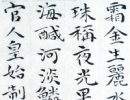 霜金生麗水
珠稱夜光果
海鹹河淡鱗
官人皇始制